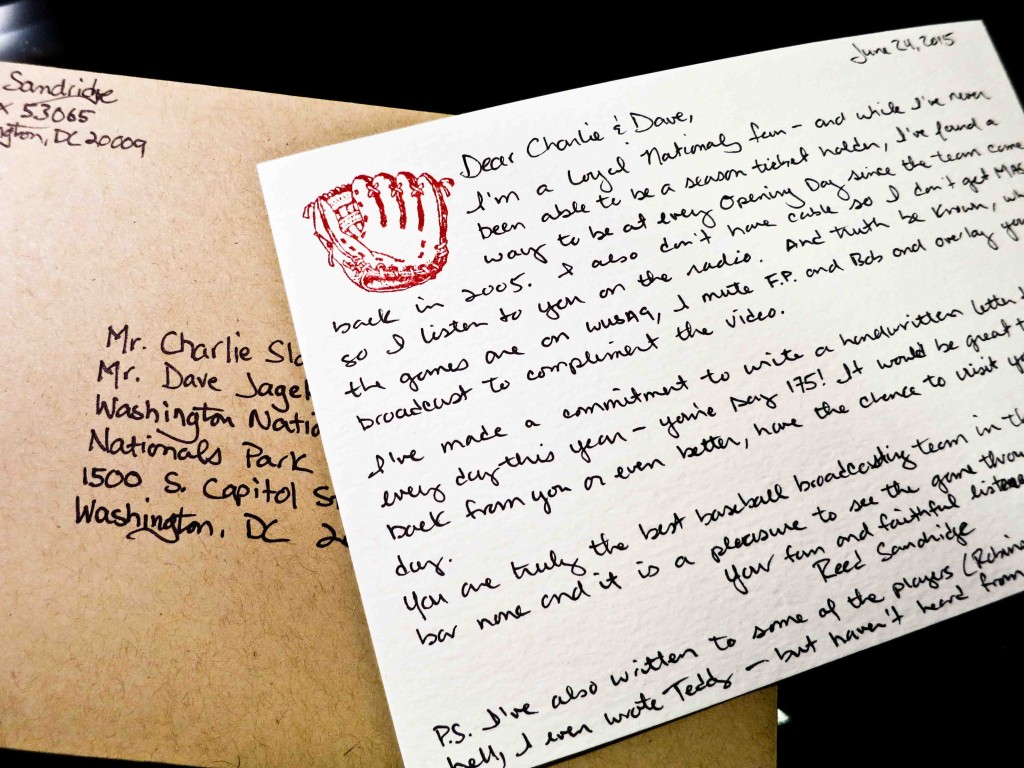 Sandridge
x 53065
ngton, DC 20009
Mr. Charlie Slo
Mr. Dave Jagel
Washington Natio
Nationals Park
1500 S. Capitol S
Washington, DC 20
June 24, 2015
Dear Charlie & Dave,
I'm a loyal Nationals fan - and while I've never
been able to be a season ticket holder, I've found a
way to be at every Opening Day since the team came
back in 2005. I also don't have cable so I don't get MAS
so I listen to you on the radio. And truth be known, wh
the games are on WUSA9, I mute F.P. and Bob and overlay you
broadcast to compliment the video.
I've made a commitment to write a handwritten letter
every day this year - you're Day 175! It would be great t
back from you or even better, have the chance to visit yo
day.
You are truly the best baseball broadcasting team in th
bar none and it is a pleasure to see the game throu
your fan and faithful listene
Reed Sandridge
P.S. I've also written to some of the players (Robins
hell, I even wrote Teddy - but haven't heard from